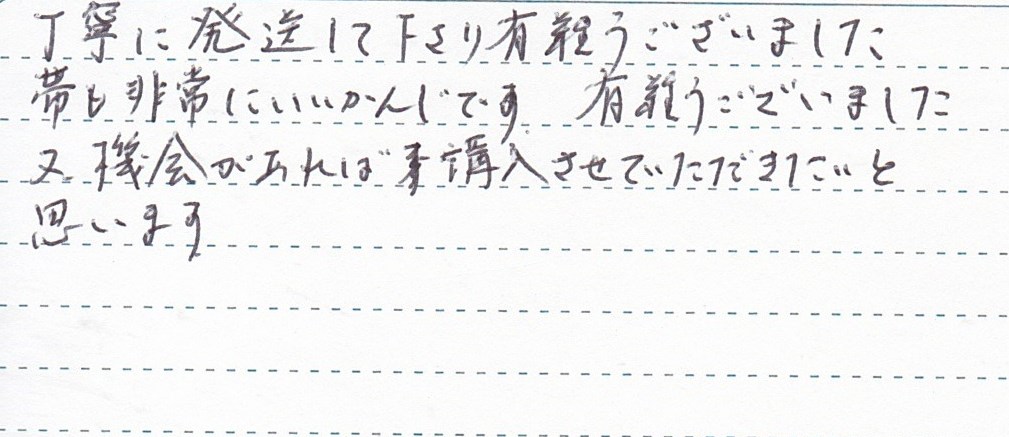 丁寧に発送して下さり有難うございました
帯も非常にいいかんじです 有難うございました
又機会があれば購入させていただきたいと
思います